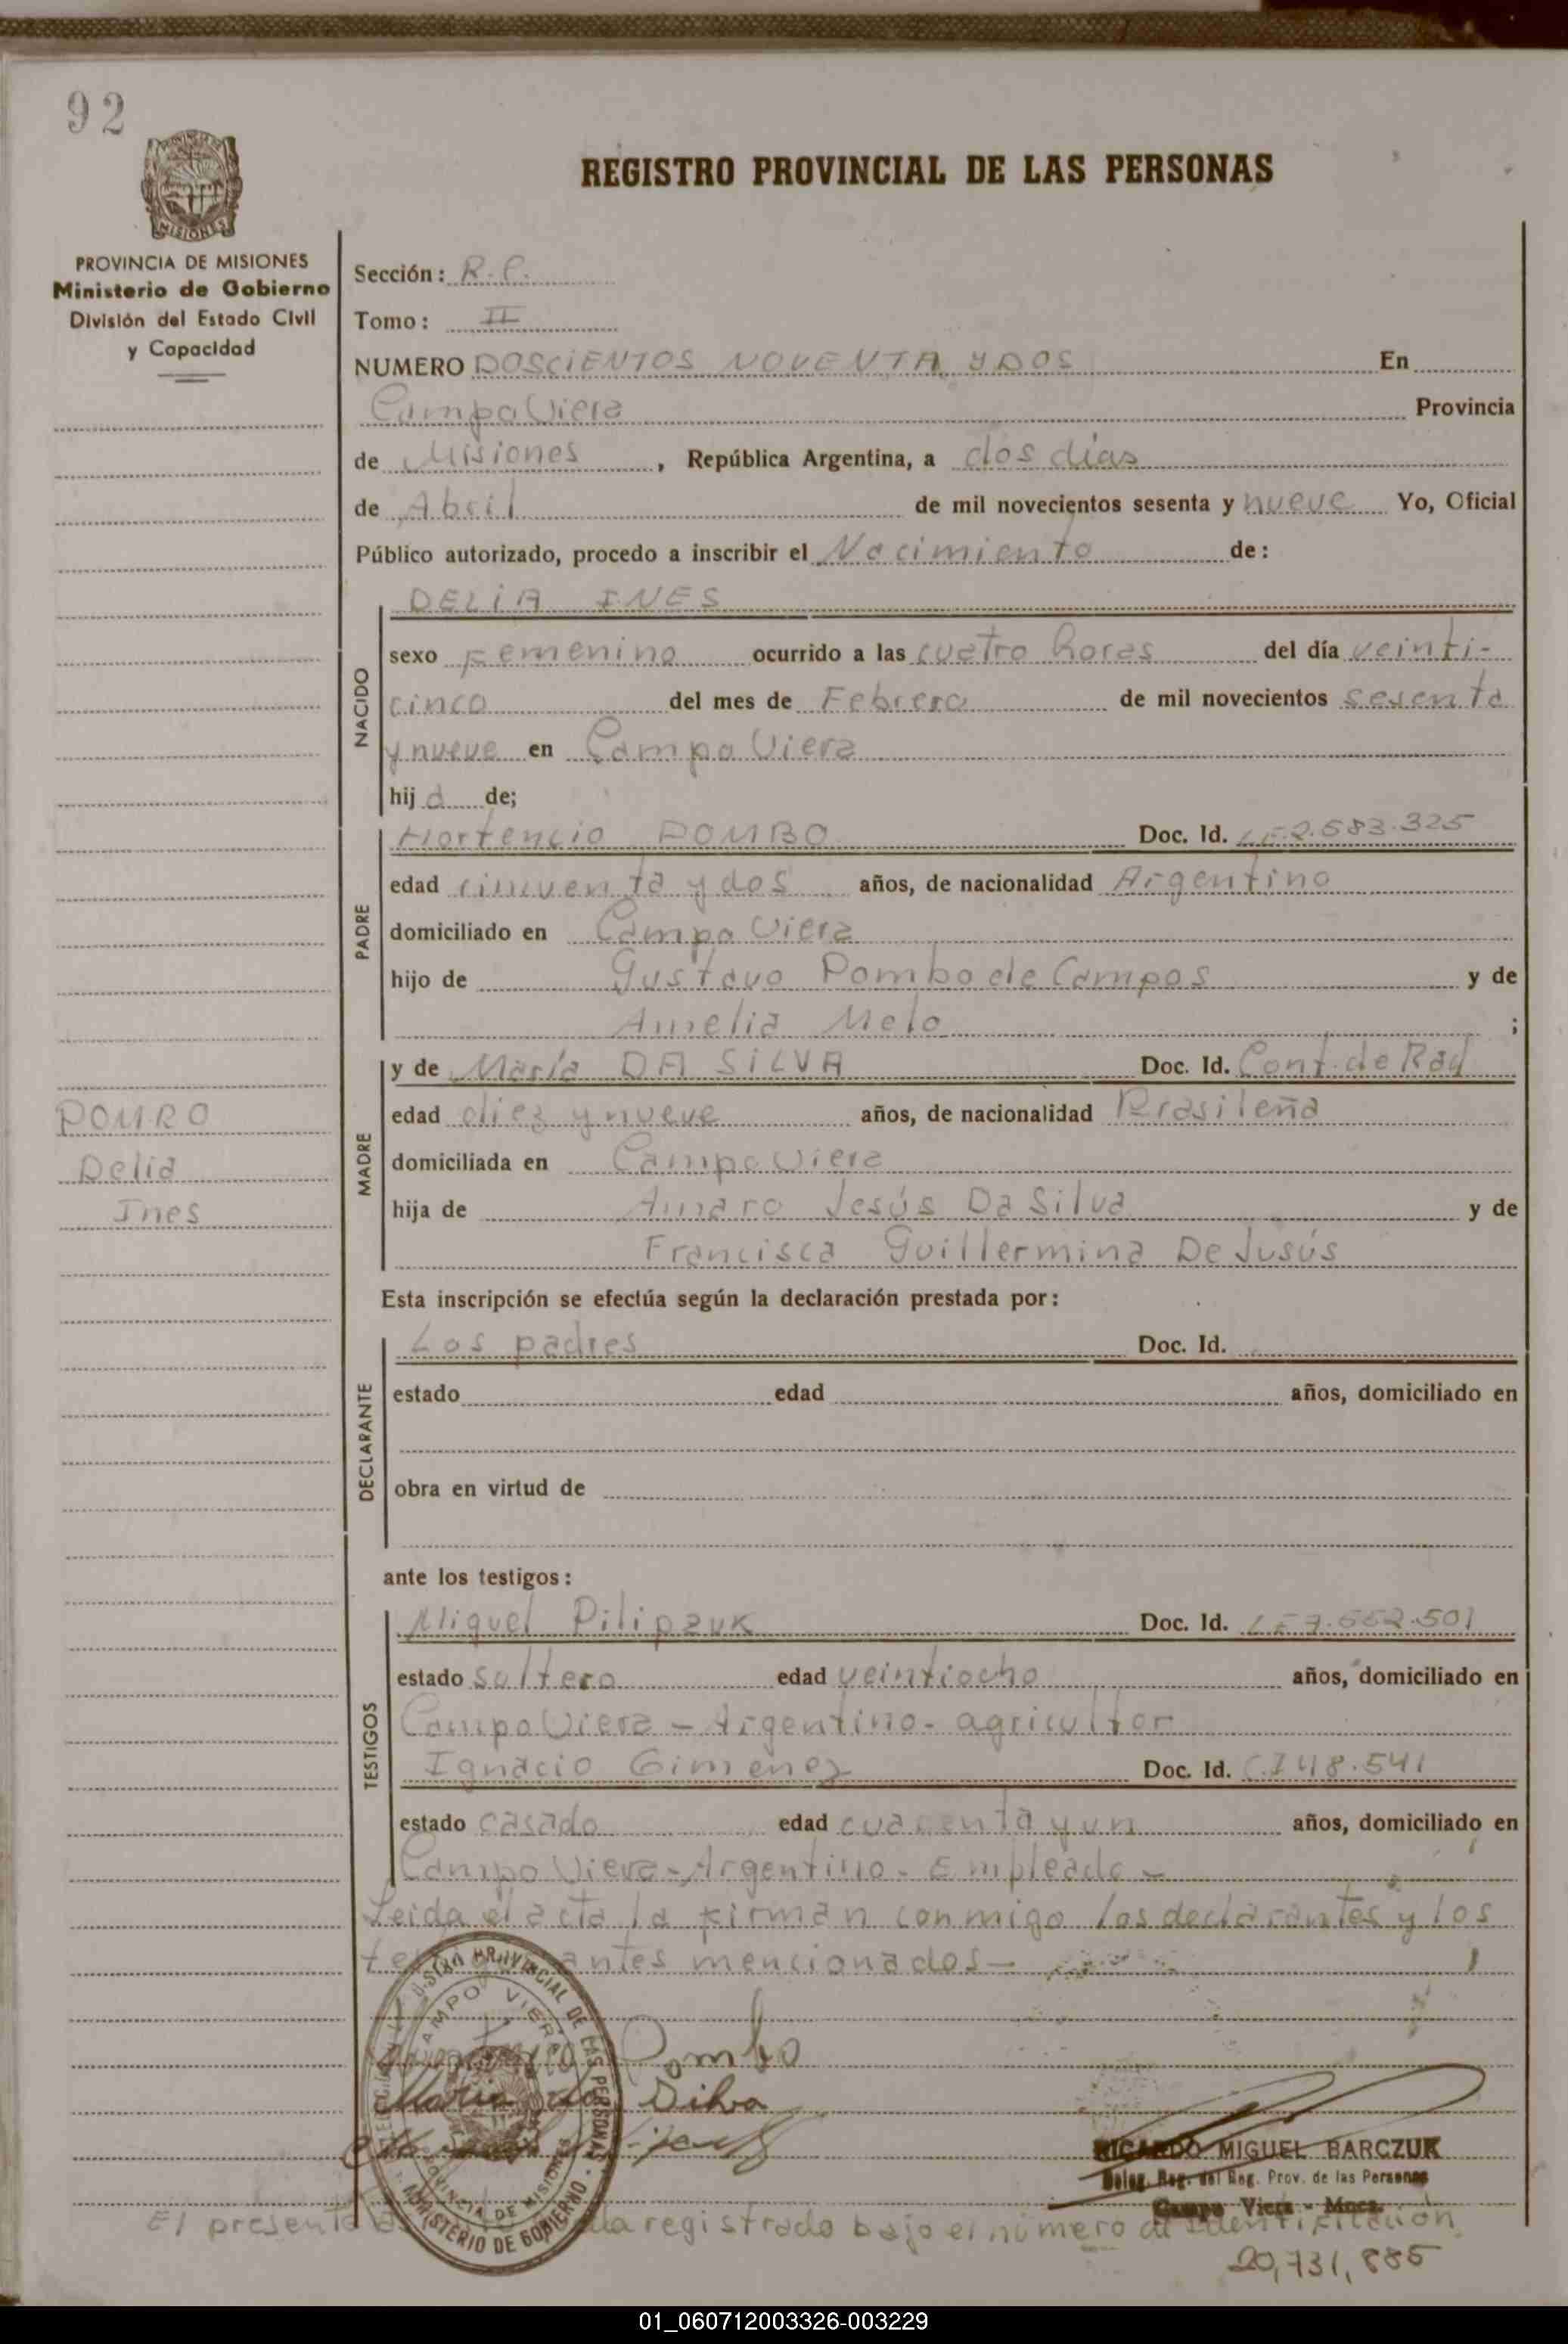 92
PROVINCIA DE MISIONES
Ministerio de Gobierno
División del Estado Civil
y Capacidad
REGISTRO PROVINCIAL DE LAS PERSONAS
Sección: R.P.
Tomo: II
NUMERO DOSCIENTOS NOVENTA Y DOS En
Campo Viera Provincia
de Misiones, República Argentina, a dos días
de Abril de mil novecientos sesenta y nueve Yo, Oficial
Público autorizado, procedo a inscribir el Nacimiento de:
NACIDO
DELIA INES
sexo Femenino ocurrido a las cuatro horas del día veinti-
cinco del mes de Febrero de mil novecientos sesenta
y nueve en Campo Viera
hija de;
PADRE
Hortencio POMBO Doc. Id. LE 2.583.325
edad cincuenta y dos años, de nacionalidad Argentino
domiciliado en Campo Viera
hijo de Gustavo Pombo de Campos y de
Amelia Melo ;
MADRE
y de María DA SILVA Doc. Id. Cont. de Rad
edad diez y nueve años, de nacionalidad Brasileña
domiciliada en Campo Viera
hija de Amaro Jesús Da Silva y de
Francisca Guillermina De Jusús
POMBO
Delia
Ines
Esta inscripción se efectúa según la declaración prestada por:
DECLARANTE
Los padres Doc. Id.
estado edad años, domiciliado en
obra en virtud de
ante los testigos:
TESTIGOS
Miguel Pilipzuk Doc. Id. LE 7.552.501
estado soltero edad veintiocho años, domiciliado en
Campo Viera - Argentino - agricultor
Ignacio Gimenez Doc. Id. C.I 48.541
estado casado edad cuarenta y un años, domiciliado en
Campo Viera - Argentino - Empleado -
Leida el acta la firman conmigo los declarantes y los
mencionados -
Pombo
Maria da Silva
REGISTRO PROVINCIAL DE LAS PERSONAS
CAMPO VIERA
PROVINCIA DE MISIONES
MINISTERIO DE GOBIERNO
RICARDO MIGUEL BARCZUK
Deleg. Reg. del Reg. Prov. de las Personas
Campo Viera - Mnes.
El presente registrado bajo el número de Identificación
20,731,885
01_060712003326-003229